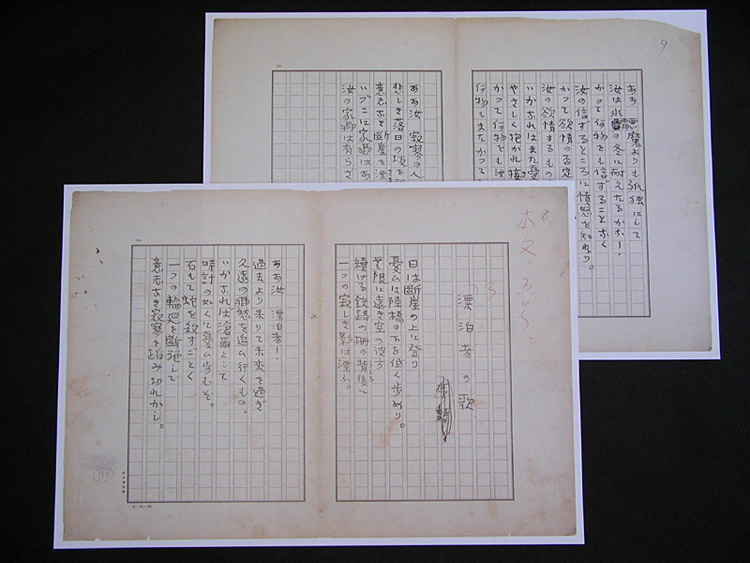 8
本文五号
漂泊者の歌
日は断崖の上に登り
憂ひは陸橋の下を低く歩めり。
無限に遠き空の彼方
続ける鉄路の柵の背後に
一つの寂しき影は漂ふ。
ああ汝 漂泊者!
過去より来りて未来を過ぎ
久遠の郷愁を追ひ行くもの。
いかなれば滄爾として
時計の如くに憂ひ歩むぞ。
石もて蛇を殺すごとく
一つの輪廻を断絶して
意志なき寂寥を踏み切れかし。
9
ああ 悪魔よりも孤独にして
汝は氷霜の冬に耐えたるかな!
かつて何物をも信ずることなく
汝の信ずるところに憤怒を知れり。
かつて欲情の否定
汝の欲情するもの
いかなればまた憂
やさしく抱かれ接
かつて何物をも汝
何物もまたかつて
ああ汝 寂寥の人
悲しき落日の坂を
意志なき断崖を漂
いづこに家郷はあ
汝の家郷は有らざ